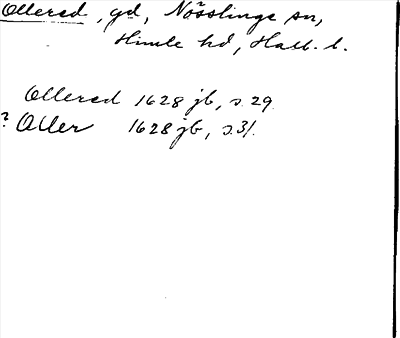 Ollered, gd, Nösslinge sn,
Himle hd, Hall. l.
Ollered 1628 jb, s. 29.
? Oller 1628 jb, s. 31.